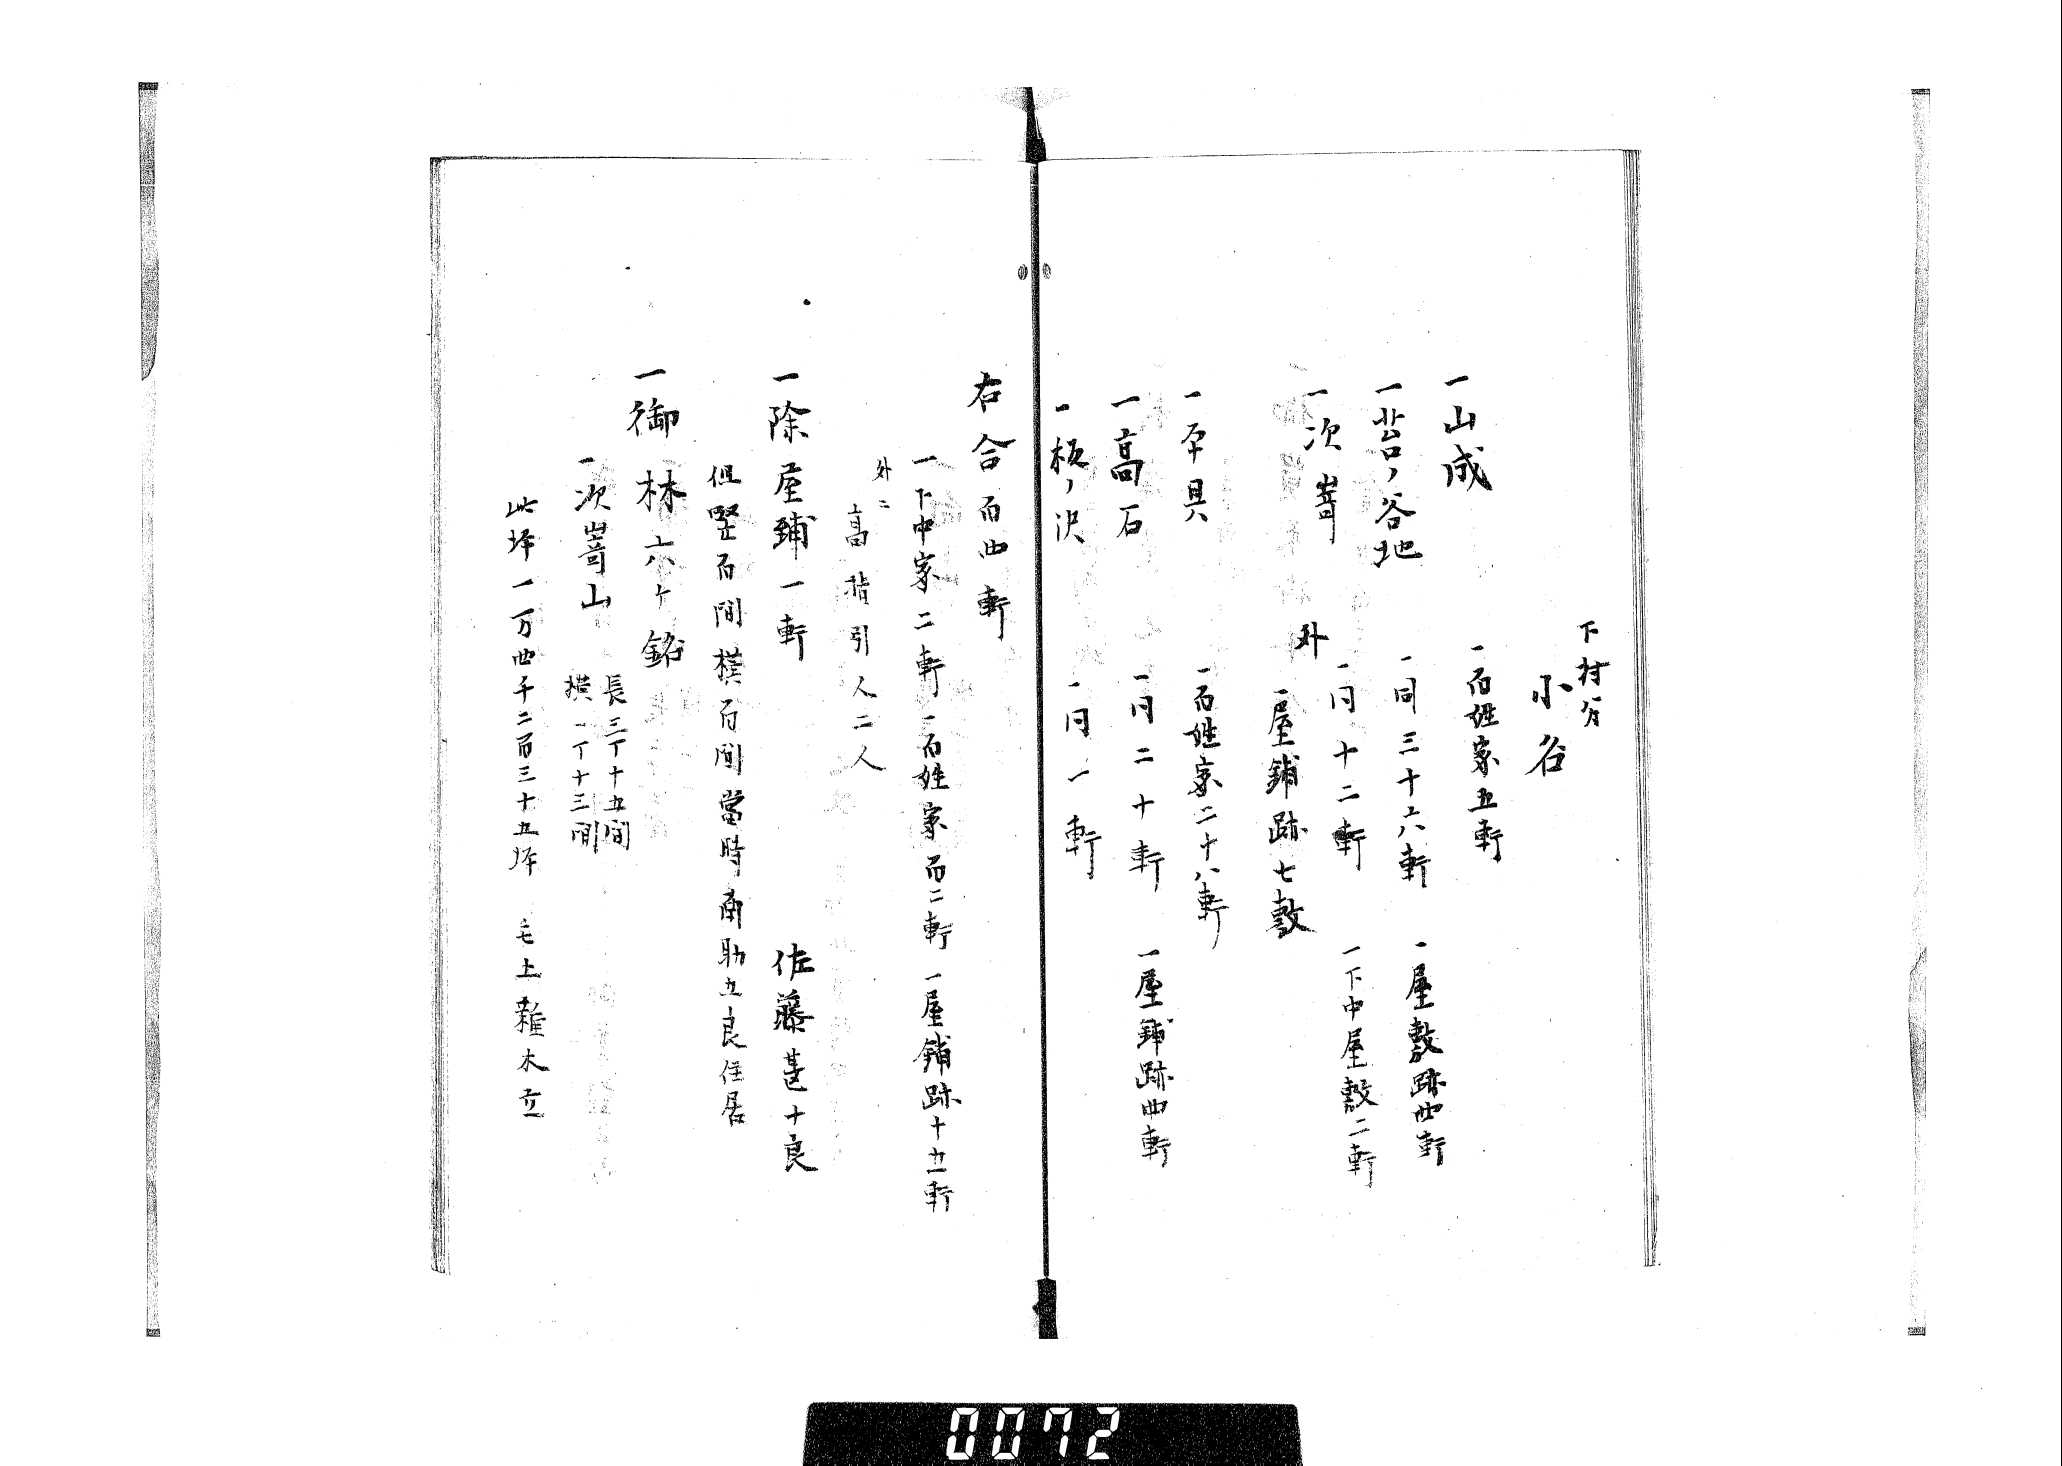 下村分
小谷
一百姓家五軒
一山成
一同三十六軒 一屋敷跡四軒
一苔ノ谷地
一同十二軒 一下中屋敷二軒
一次嵜
外
一屋鋪跡七敷
一百姓家二十八軒
一卒具
一同二十軒 一屋鋪跡四軒
一高石
一同一軒
一板ノ沢
右合百四軒
一下中家二軒 一百姓家百二軒 一屋鋪跡十五軒
外ニ
高 引人二人
一除屋鋪一軒 佐藤甚十良
但竪百間横百間當時南助五良住居
一御林六ケ銘
一次嵜山 長三丁十五間
横一丁十三間
此坪一万四千二百三十五坪 毛上雜木立
0072